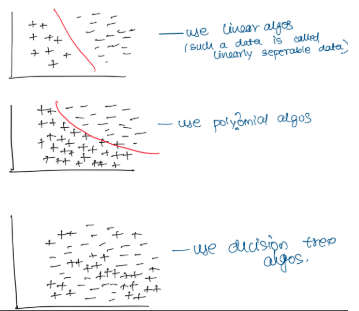 — use linear algos
(such a data is called
linearly seperable data)
— use polynomial algos
— use decision tree
algos.